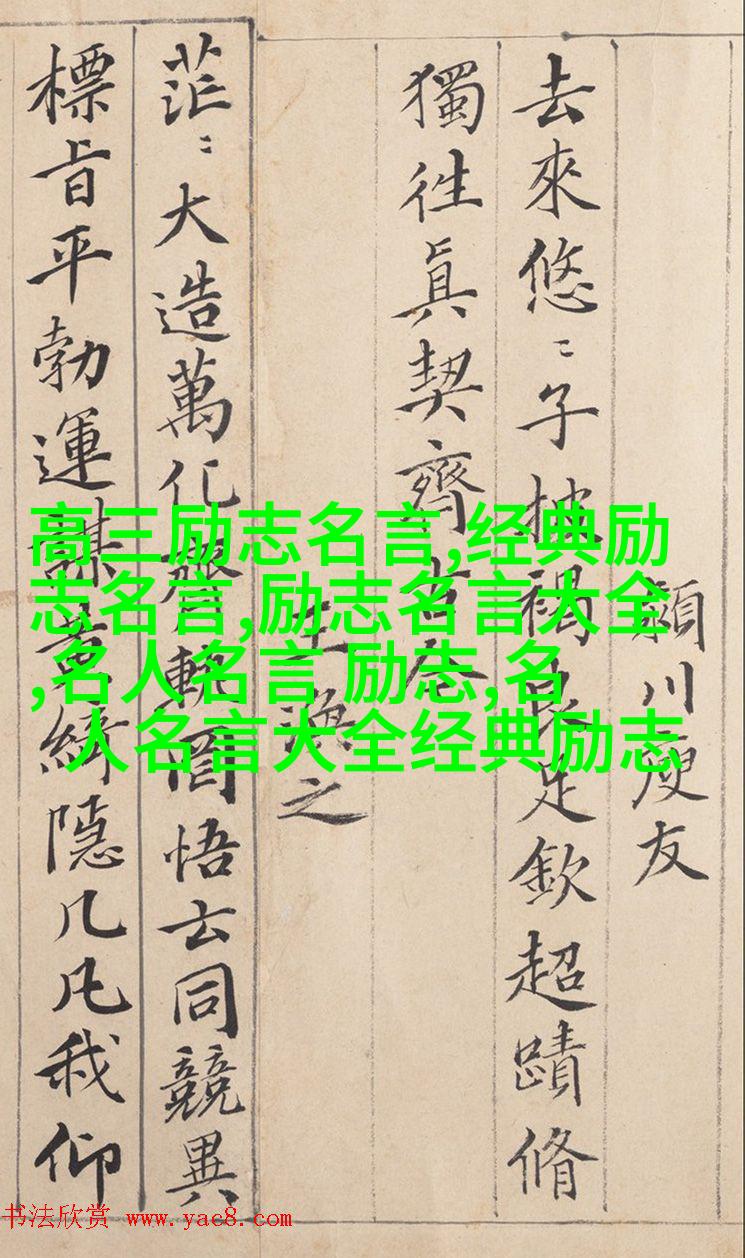 頴川庾友
去來悠〻子披褐良足欽超蹟脩
獨徃眞契齊古今
王渙之
茫〻大造萬化齊軌罔悟玄同競異
標旨平勃運謀黃綺隱几凡我仰
高三励志名言,经典励
志名言,励志名言大全
,名人名言 励志,名
人名言大全经典励志
书法欣赏 www.yac8.com